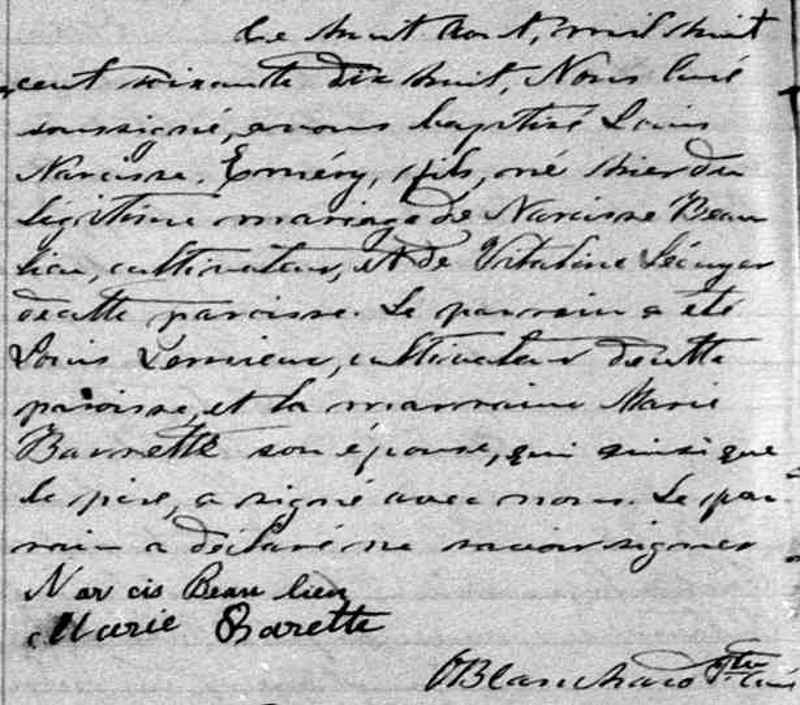 Le huit Aout, mil huit
cent soixante dix huit, Nous Curé
soussigné, avons baptisé Louis
Narcisse Emery, fils, né hier du
légitime mariage de Narcisse Beau
lieu, cultivateur, et de Vitaline Lécuyer
de cette paroisse. Le parrain a été
Louis Lemieux, cultivateur de cette
paroisse, et la marraine Marie
Barrette son épouse, qui ainsi que
le père, a signé avec nous. Le par-
rain a déclaré ne savoir signer
Narcis Beau lieu
Marie Barette
O Blanchard Ptre
Curé